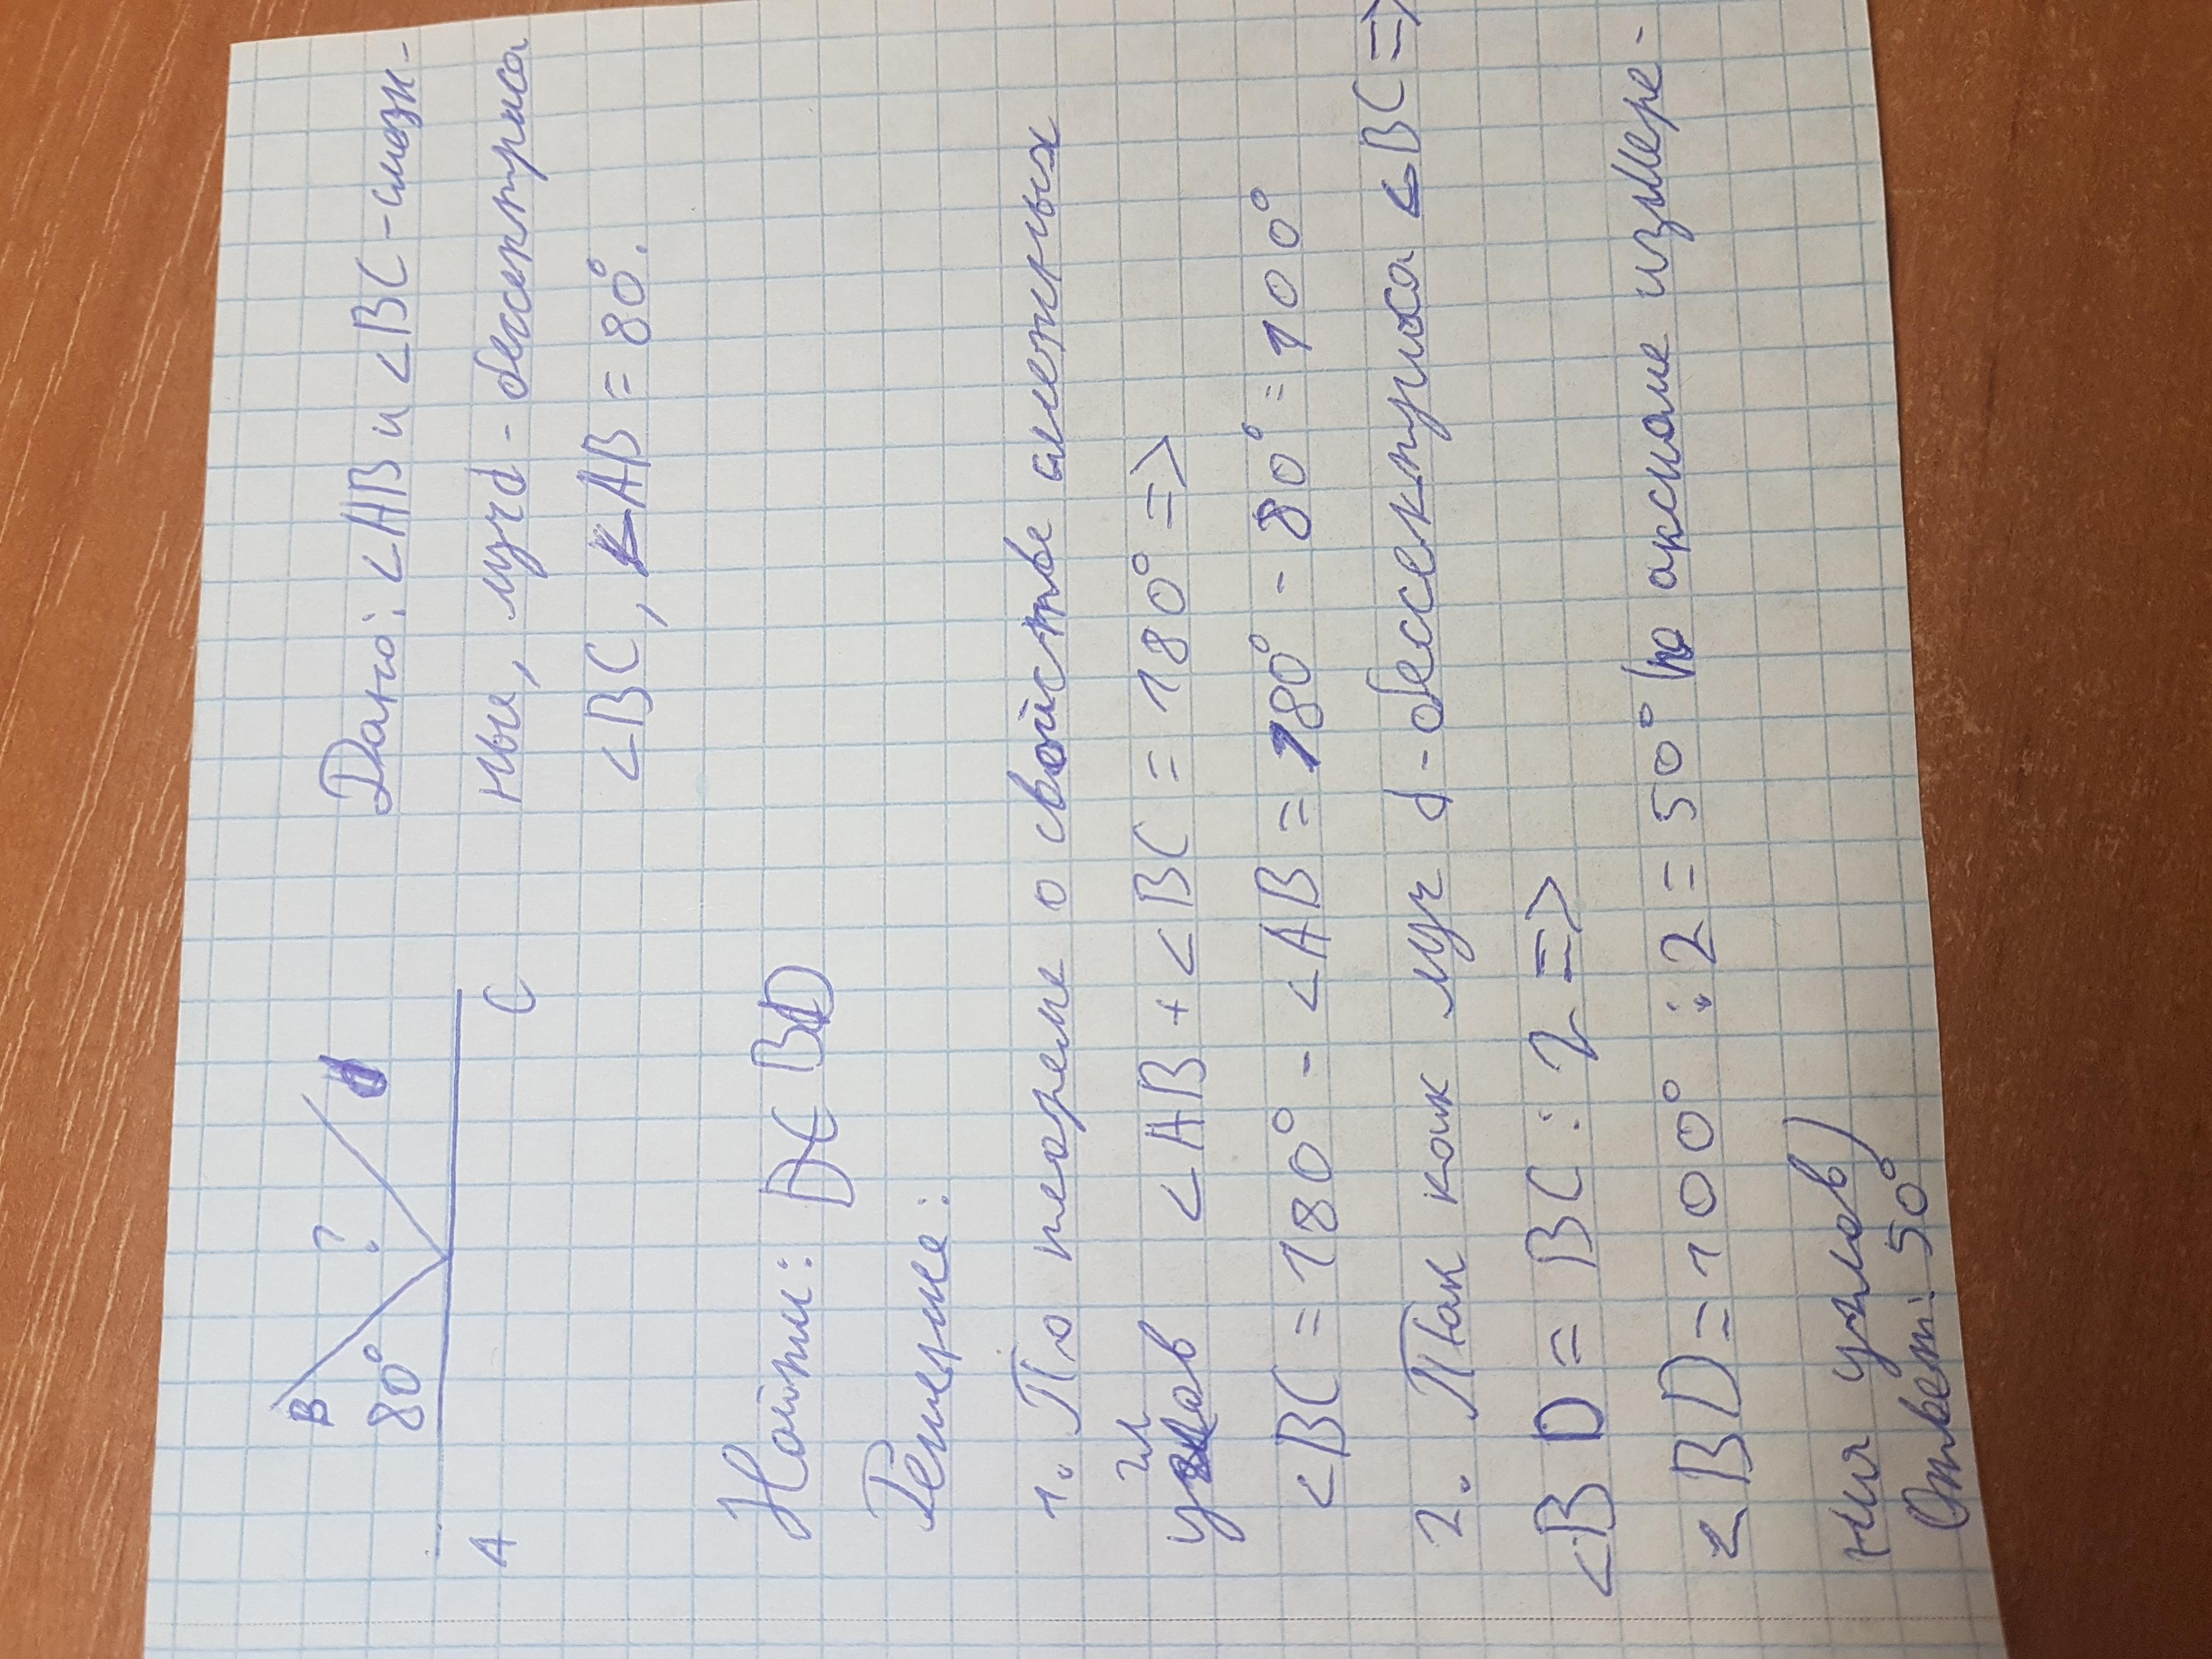 B
80°
?
d
A
C
Дано: <AB и <BC - смеж-
ные, луч d - бессектриса
<BC, <AB = 80°.
Найти: BD
Решение:
1. По теореме о свойстве смежных
углов <AB + <BC = 180° =>
<BC = 180° - <AB = 180° - 80° = 100°
2. Так как луч d - бессектриса <BC =>
<BD = BC : 2 =>
<BD = 100° : 2 = 50° (по аксиоме измере-
ния углов)
Ответ: 50°